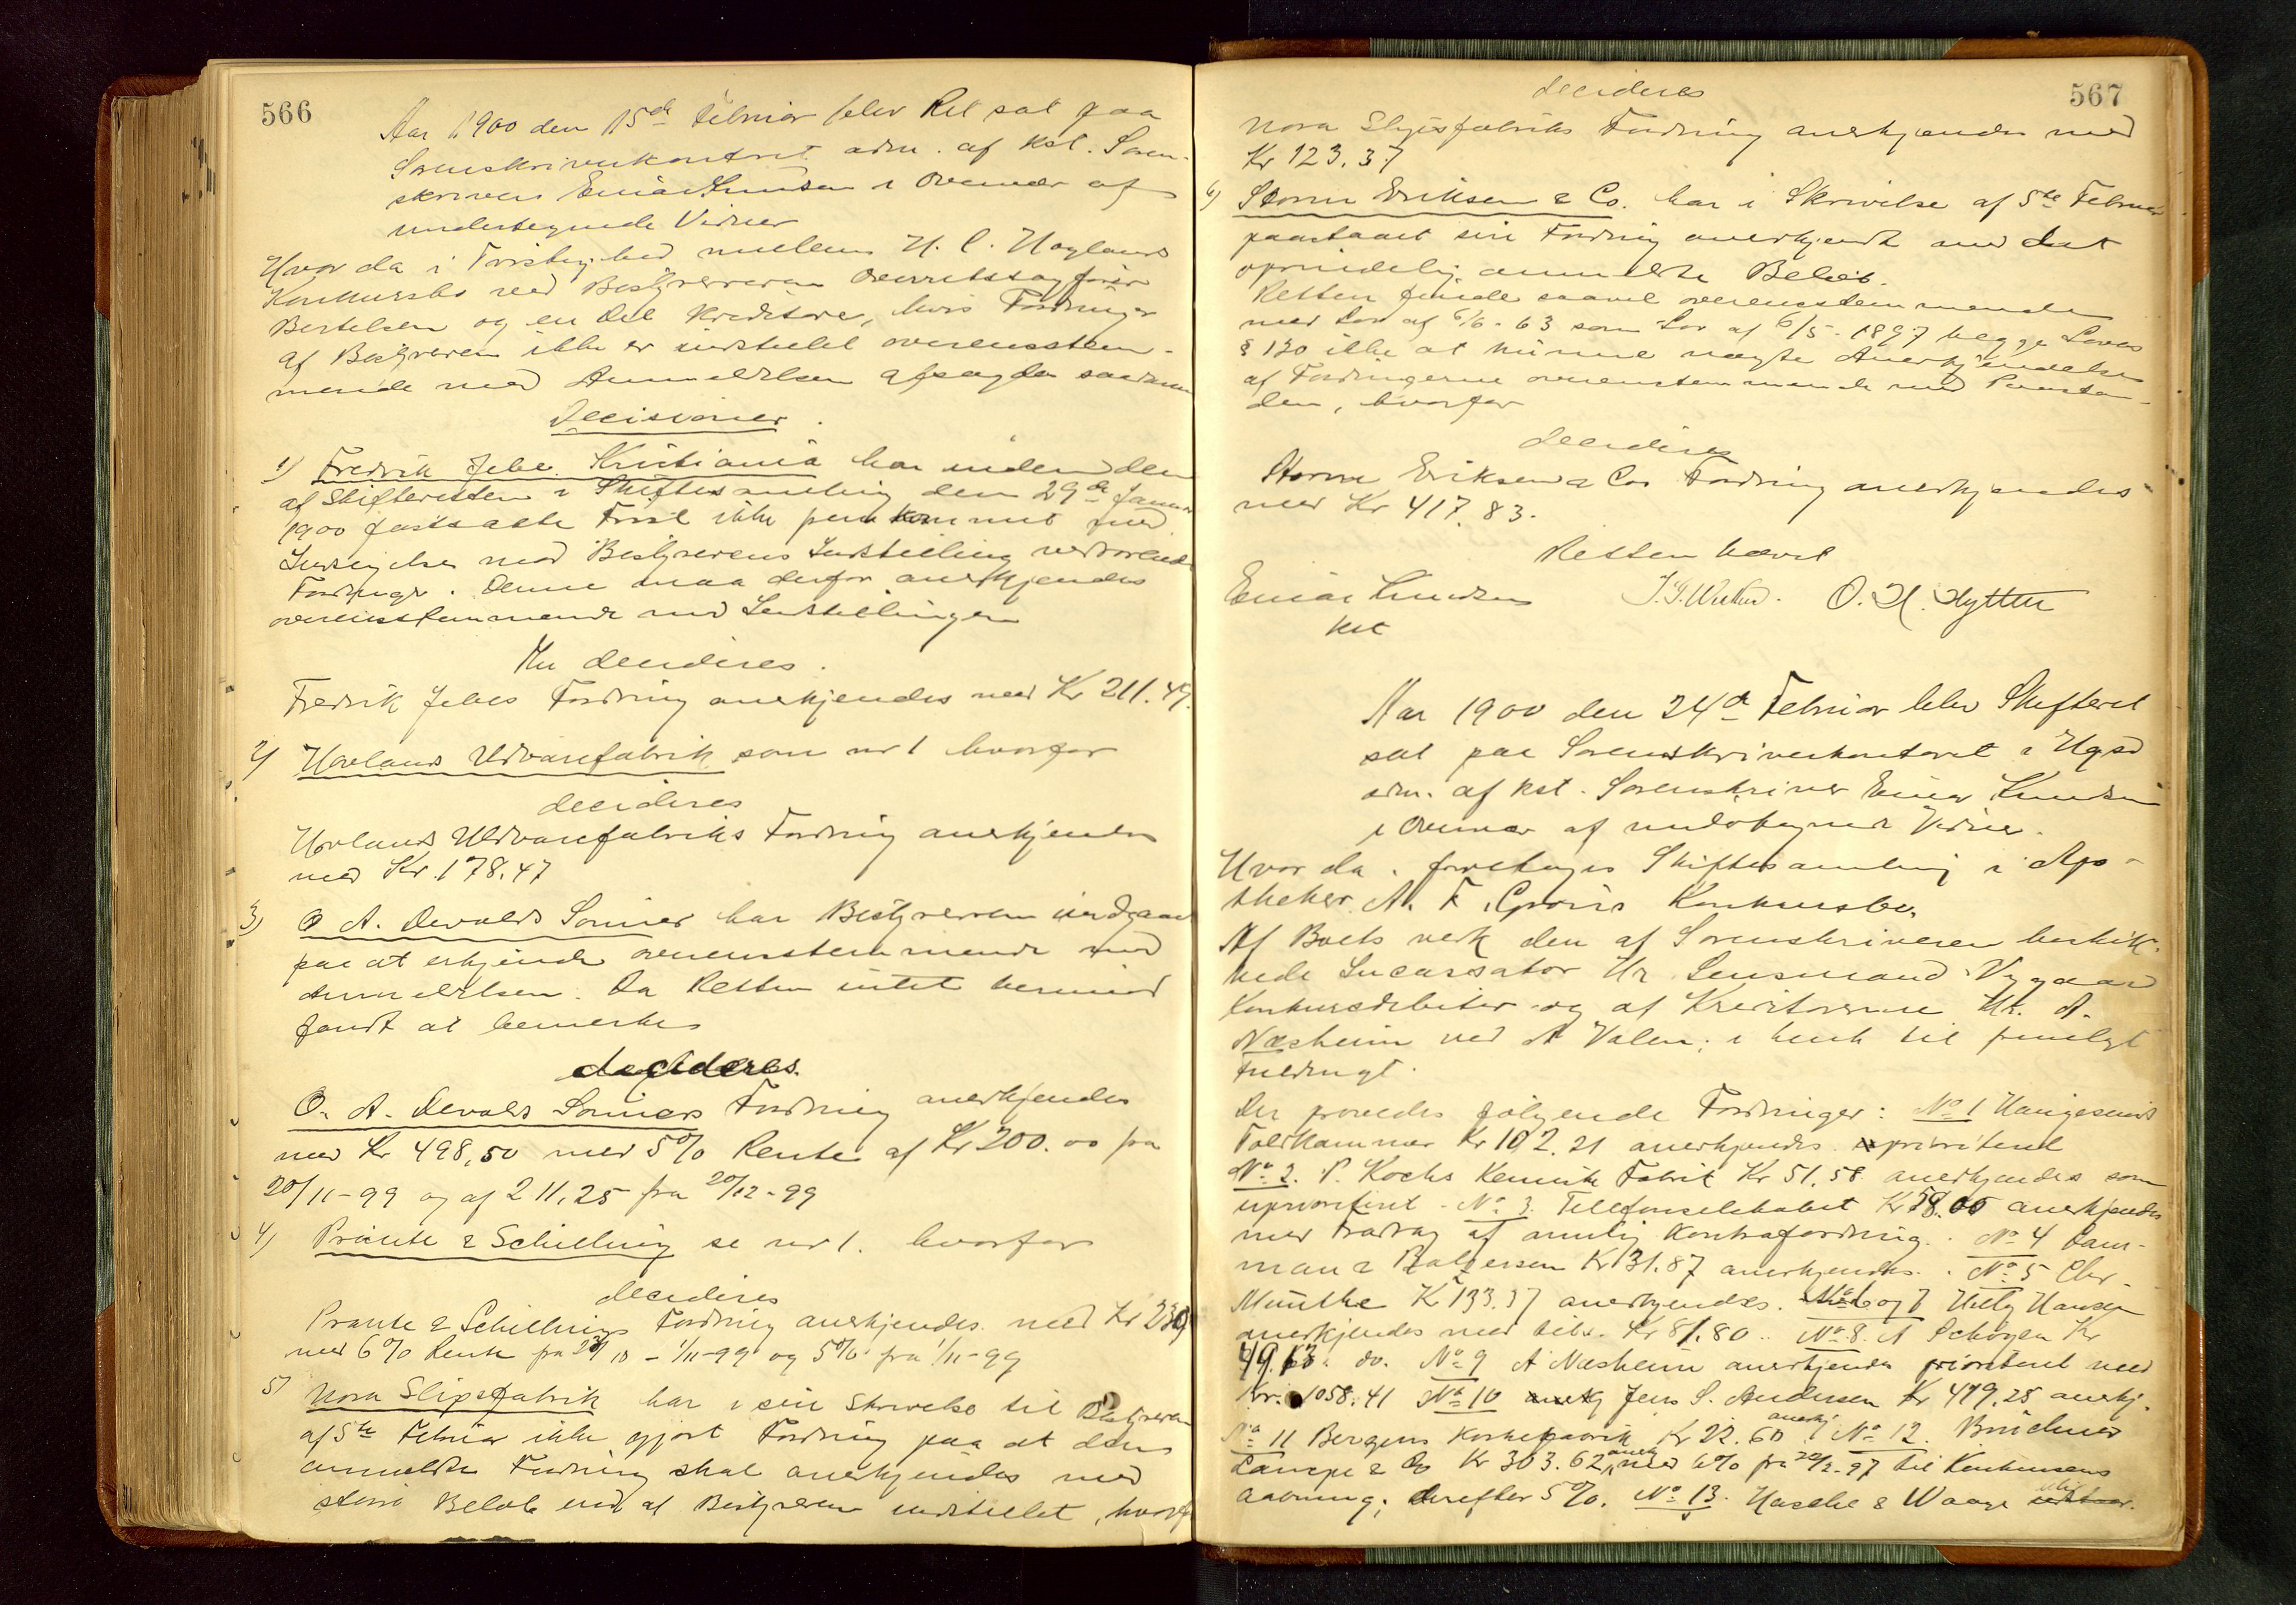 566
Aar 1900 den 15de Februar blev Ret sat paa
Sorenskriverkontoret adm. af kst. Soren-
skriver Einar Knudsen i Overvær af
undertegnede Vidner
Hvor da i Tvistighed mellem H. C. Høylands
Konkursbo ved Bestyreren Overretssagfører
Bertelsen og en Del Kreditore, hvis Fordringer
af Bestyreren ikke er indstillet overensstem-
mende med Anmeldelsen afsagdes saadanne
Decisioner.
1) Fredrik Jebe Kristiania har inden den
af Skifteretten i Skiftesamling den 29de Januar
1900 fastsatte Frist ikke fremkommet med
Indsigelse mod Bestyrerens Indstilling vedrørende
Fordringen. Denne maa derfor anerkjendes
overensstemmende med Indstillingen
Thi decideres.
Fredrik Jebes Fordring anerkjendes med Kr 211.49.
2) Hovlands Uldvarefabrik som nr 1 hvorfor
decideres
Hovlands Uldvarefabriks Fordring anerkjendes
med Kr. 178.47
3) O A. Devolds Sønner har Bestyreren indgaaet
paa at erkjende overensstemmende med
Anmeldelsen. Da Retten intet hermed
fandt at bemerke
decideres.
O. A. Devolds Sønners Fordring anerkjendes
med Kr 498,50 med 5% Rente af Kr 200.00 fra
20/11-99 og af 211,25 fra 20/12-99
4) Prante & Schilling se nr 1. hvorfor
decideres
Prante & Schillings Fordring anerkjendes med Kr 230
med 6% Rente fra 29/10 - 1/11-99 og 5% fra 1/11-99
5) Nora Slipsfabrik har i sin Skrivelse til Bestyreren
af 5te Februar ikke gjort Fordring paa at dens
anmeldte Fordring skal anerkjendes med
større Beløb end af Bestyreren indstillet, hvorfor
567
decideres
Nora Slipsfabriks Fordring anerkjendes med
Kr 123.37
6) Storm Eriksen & Co. har i Skrivelse af 5te Februar
paastaaet sin Fordring anerkjendt med det
oprindelig anmeldte Beløb.
Retten finder saavel overensstemmende
med Lov af 6/6-63 som Lov af 6/5-1897 begge Loves
§ 130 ikke at kunne nægte Anerkjendelse
af Fordringerne overenstemmende med Paastan-
den, hvorfor
decideres
Storm Eriksen & Cos Fordring anerkjendes
med Kr 417.83.
Retten hævet
Einar Knudsen O. H. Hytten
kst
Aar 1900 den 24de Februar blev Skifteret
sat paa Sorenskriverkontoret i Hgsd
adm. af kst. Sorenskriver Einar Knudsen
i Overvær af undertegnede Vidner.
Hvor da foretoges Skiftesamling i Apo-
theker A. F. Grøns Konkursbo.
Af Boets vedk den af Sorenskriveren beskik-
kede Incassator Hr Lensmand Vygaard
Konkursdebitor og af Kreditorerne Hr. A.
Næsheim ved A Valen; i henh til fremlagt
Fuldmagt.
Der prøvedes følgende Fordringer: No 1 Haugesunds
Toldkammer Kr 102.21 anerkjendes uprioriteret
No 2. P. Kochs Kemiske Fabrik Kr 51.58 anerkjendes som
uprioriteret - No 3. Telefonselskabet Kr 58.00 anerkjendes
med Fradrag af mulig Kontrafordring. No 4 Dam-
man & Kr 131.87 anerkjendes. No 5 Chr.
Munthe Kr 133.37 anerkjendes. No 6 og 7 Hansen
anerkjendes med tils. Kr 81.80. No 8. A Schøyen Kr
49.13. do. No 9 A Næsheim anerkjendes prioriteret med
Kr. 1058.41 No 10 Jens S. Andersen Kr 479.25 anerkj.
No 11 Bergens Korkefabrik Kr 22.60 anerkj No 12. Bruchner
Lampe & Co Kr 303.62 anerk med 6% fra 20/2-97 til Konkursens
Aabning; derefter 5%. No 13. Hasche & Woage